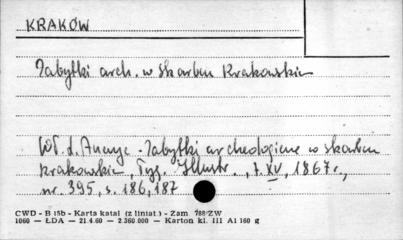 KRAKÓW
Zabytki arch. w Skarbcu Krakowskim
Wł. L. Anczyc - Zabytki archeologiczne w skarbcu
krakowskim, Tyg. Illustr., t. XV, 1867 r.,
nr. 395, s. 186, 187
CWD - B 15b - Karta katal (z liniat.) - Zam 788/ZW
1060 — ŁDA — 21.4.60 — 2 360 000 — Karton kl. III A1 160 g